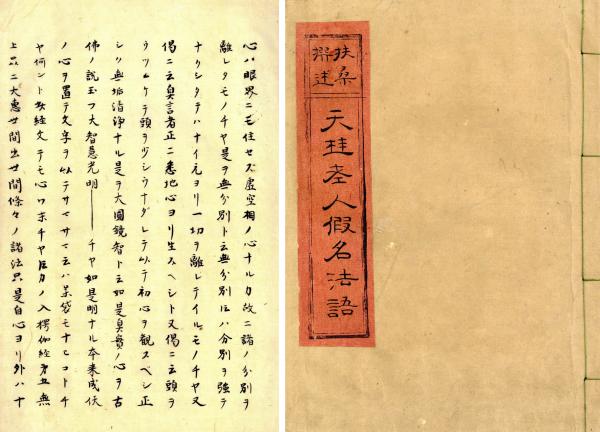 扶桑
撰述
天桂老人假名法語
心ハ眼界ニモ住セズ虚空相ノ心ナルカ故ニ諸ノ分別ヲ
離レタモノチヤ是ヲ無分別ト云無分別ハ分別ヲ強テ
ナクシタテハナイ元ヨリ一切ヲ離レテイルモノチヤ又
偈ニ云真言者正ニ悉地心ヨリ生スヘシト又偈ニ云頭ヲ
ウツムケテ頭ヲウナダレテ以テ初心ヲ観スベシ正
シク無垢清浄ナル是ヲ大圓鏡智ト云如是真實ノ心ヲ古
佛ノ説玉フ大智慧光明――チヤ如是明ナル本来成仏
ノ心ヲ置テ文字ヲ以テサマサマ云ハ茶袋モナヒコトチ
ヤ何ント経文テモ心ノ入楞伽経第五無
上品ニ大恵世間出世間條々ノ諸法只是自心ヨリ外ハナ